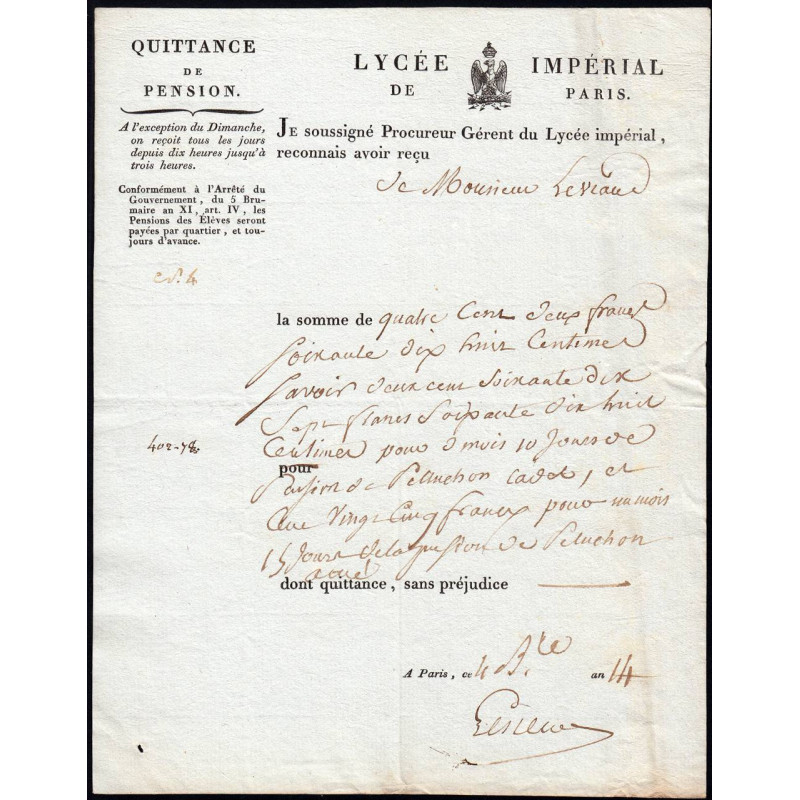 QUITTANCE
DE
PENSION.
A l'exception du Dimanche,
on reçoit tous les jours
depuis dix heures jusqu'à
trois heures.
Conformément à l'Arrêté du
Gouvernement, du 5 Bru-
maire an XI, art. IV, les
Pensions des Élèves seront
payées par quartier, et tou-
jours d'avance.
LYCÉE IMPÉRIAL
DE PARIS.
JE soussigné Procureur Gérent du Lycée impérial,
reconnais avoir reçu
de Monsieur
la somme de quatre Cent deux francs
soixante dix huit Centimes
savoir deux cent soixante dix
sept francs soixante dix huit
402-78
Centimes pour 3 mois 10 Jours de
pour
Pension de Peluchon cadet, et
Cent Vingt Cinq francs pour un mois
15 Jours de la pension de Peluchon
ainé
dont quittance, sans préjudice
A Paris, ce 4 Bre an 14